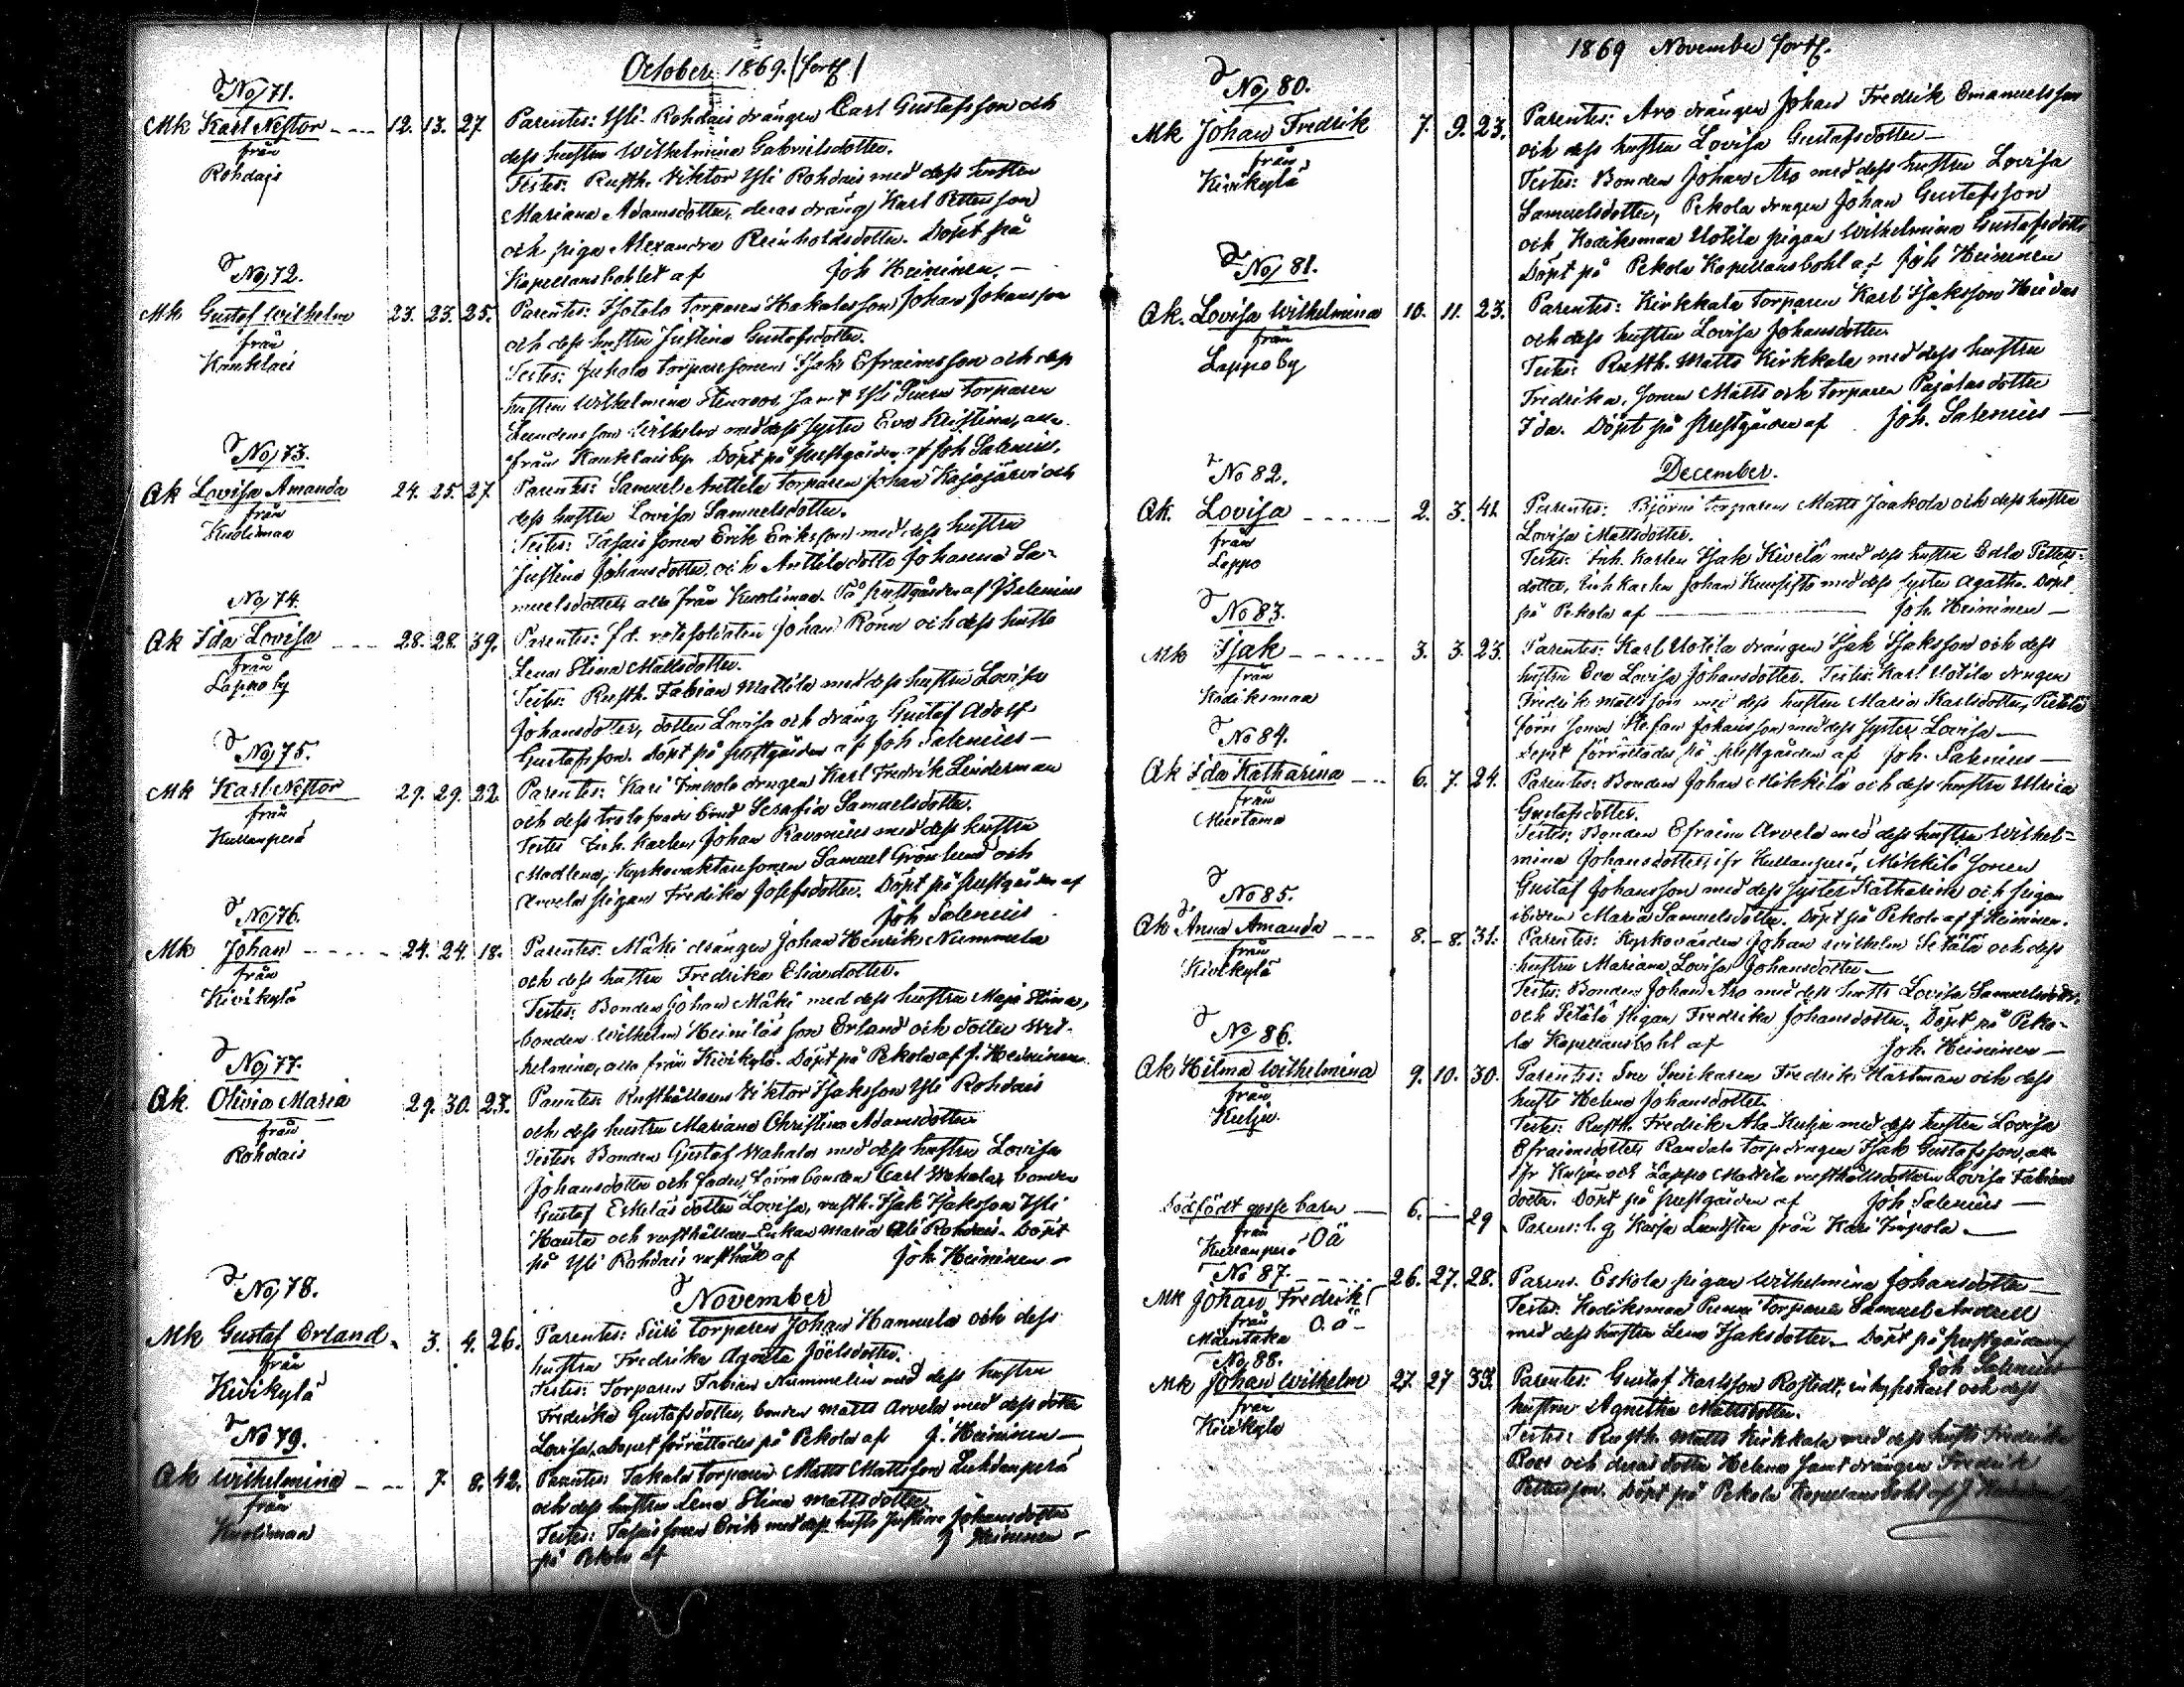 October 1869. (forts)
No 71.
Mk Karl Nestor 12. 13. 27
från
Rohdais
Parentes: Yli Rohdais drängen Carl Gustafsson och
dess hustru Wilhelmina Gabrielsdotter.
Testes: Rusth. Viktor Yli Rohdais med dess hustru
Mariana Adamsdotter, deras dräng Karl Pettersson
och piga Alexandra Reinholdsdotter. Döpt på
Kapellansbohlet af Joh Heininen.
No 72.
Mk Gustaf Wilhelm 23. 23. 25.
från
Kauklais
Parentes: torparen Johan Johansson
och dess hustru Justina Gustafsdotter.
Testes: Juhola torparesonen Isak Efraimsson och dess
hustru Wilhelmina Stenroos, samt Yli torparen
Wilhelm med dess syster Eva Kristina, alla
från Kauklaisby. Döpt på prestgården af Joh Salenius.
No 73.
Qk Lovisa Amanda 24. 25. 27
från
Kuolimaa
Parentes: Samuel Anttila torparen Johan Kajajärvi och
dess hustru Lovisa Samuelsdotter.
Testes: sonen Erik Eriksson med dess hustru
Justina Johansdotter, och Anttila dotter Johanna Sa-
muelsdotter, alla från Kuolimaa. På prestgården af J Salenius
No 74.
Qk Ida Lovisa 28. 28. 39.
från
Lappo by
Parentes: f.d. rotesoldaten Johan Rönn och dess hustru
Lena Stina Mattsdotter.
Testes: Rusth. Fabian Mattila med dess hustru Lovisa
Johansdotter, dotter Lovisa och dräng Gustaf Adolf
Gustafsson. Döpt på prestgården af Joh Salenius
No 75.
Mk Karl Nestor 29. 29. 22
från
Kullanperä
Parentes: Kari Impola drengen Karl Fredrik Linderman
och dess trolofvade brud Serafia Samuelsdotter.
Testes Inh. karlen Johan Ravonius med dess hustru
Madlena, Kyrkovaktaresonen Samuel Grönlund och
Arvela pigan Fredrika Josefsdotter. Döpt på prestgården af
Joh Salenius
No 76.
Mk Johan 24. 24. 18.
från
Kivikylä
Parentes: Mäki drängen Johan Henrik Nummela
och dess hustru Fredrika Eliasdotter.
Testes: Bonden Johan Mäki med dess hustru Maja Stina,
bonden Wilhelm Heiniläs son Erland och dotter Wil-
helmina, alla från Kivikylä. Döpt på Pekola af J. Heininen
No 77.
Qk Olivia Maria 29. 30. 23.
från
Rohdais
Parentes Rusthållaren Viktor Isaksson Yli Rohdais
och dess hustru Mariana Christina Adamsdotter
Testes: Bonden Gustaf Wahala med dess hustru Lovisa
Johansdotter och fader, förra bonden Carl Wahala, bonden
Gustaf Eskeläs dotter Lovisa, rusth. Isak Isaksson Yli
och rusthållare Enkan Maria Yli Rohdais. Döpt
på Yli Rohdais rusthåll af Joh. Heininen
November
No 78.
Mk Gustaf Erland 3. 4. 26.
från
Kivikylä
Parentes: Siiri torparen Johan Hannula och dess
hustru Fredrika Agata Joelsdotter.
Testes: Torparen Fabian Nummelin med dess hustru
Fredrika Gustafsdotter, bonden Matts Arvela med dess dotter
Lovisa. Dopet förrättades på Pekola af J. Heininen
No 79.
Qk Wilhelmina 7. 8. 42.
från
Kuolimaa
Parentes: Takala torparen Matts Mattsson Luhdanperä
och dess hustru Lena Stina Mattsdotter.
Testes: sonen Erik med dess hustru Justina Johansdotter
på Pekola af J Heininen
1869 November forts.
No 80.
Mk Johan Fredrik 7. 9. 23.
från
Kivikylä
Parentes: Aro drängen Johan Fredrik Emanuelsson
och dess hustru Lovisa Gustafsdotter
Testes: Bonden Johan Aro med dess hustru Lovisa
Samuelsdotter, Pekola drengen Johan Gustafsson
och Kodiksmaa Uotila pigan Wilhelmina Gustafsdotter
Döpt på Pekola Kapellansbohl af Joh Heininen
No 81.
Qk. Lovisa Wilhelmina 10. 11. 23.
från
Lappo by
Parentes: Kirkkala torparen Karl Isaksson
och dess hustru Lovisa Johansdotter.
Testes: Rusth. Matts Kirkkala med dess hustru
Fredrika, sonen Matts och torparen Pajalas dotter
Ida. Döpt på prestgården af Joh. Salenius
December.
No 82.
Qk. Lovisa 2. 3. 41.
från
Lappo
Parentes: Björni torparen Matts Jaakola och dess hustru
Lovisa Mattsdotter.
Testes: Inh. karlen Isak Kivelä med dess hustru Edla Petters-
dotter, Inh karlen Johan med dess syster Agatha. Döpt
på Pekola af Joh. Heininen
No 83.
Mk Isak 3. 3. 23.
från
Kodiksmaa
Parentes: Karl Uotila drängen Isak Isaksson och dess
hustru Eva Lovisa Johansdotter. Testes: Karl Uotila drengen
Fredrik Mattsson med dess hustru Maria Karlsdotter,
sonen Stefan Johansson med dess syster Lovisa
Dopet förrättades på prestgården af Joh. Salenius
No 84.
Qk Ida Katharina 6. 7. 24.
från
Parentes: Bonden Johan Mikkilä och dess hustru Ulrica
Gustafsdotter.
Testes: Bonden Efraim Arvela med dess hustru Wilhel-
mina Johansdotter, ifr Kullanperä, Mikkilä sonen
Gustaf Johansson med dess syster Katharina och pigan
Maria Samuelsdotter. Döpt på Pekola af J Heininen.
No 85.
Qk Anna Amanda 8. 8. 31.
från
Kivikylä
Parentes: Kyrkovärden Johan Wilhelm Setälä och dess
hustru Mariana Lovisa Johansdotter
Testes: Bonden Johan Aro med dess hustru Lovisa Samuelsdotter,
och Setälä pigan Fredrika Johansdotter. Döpt på Peko-
la Kapellansbohl af Joh. Heininen
No 86.
Qk Hilma Wilhelmina 9. 10. 30.
från
Kulju
Parentes: Fredrik Hartman och dess
hustr Helena Johansdotter.
Testes: Rusth. Fredrik Ala-Kulju med dess hustru Lovisa
Efraimsdotter, Randala torp drengen Isak Gustafsson, alla
ifr Kulju och Lappo Mattila rusthållsdottern Lovisa Fabians
dotter. Döpt på prestgården af Joh. Salenius
Dödfödt gosse barn 6. 29
från
Kullanperä Oä
Parens: l. q. Kajsa Lundsten från Kari Impola
No 87.
Mk Johan Fredrik 26. 27. 28.
från O. ä
Parens. Eskola pigan Wilhelmina Johansdotter
Testes: Kodiksmaa torparen Samuel
med dess hustru Lena Isaksdotter. Döpt på prestgården af
Joh Salenius
No 88.
Mk Johan Wilhelm 27. 27 33.
från
Kivikylä
Parentes: Gustaf Karlsson Rostedt, och dess
hustru Agnetha Mattsdotter.
Testes: Rusth. Matts Kirkkala med dess hustr Fredrika
Roos och deras dotter Helena samt drängen Fredrik
Pettersson. Döpt på Pekola Kapellansbohl af J.